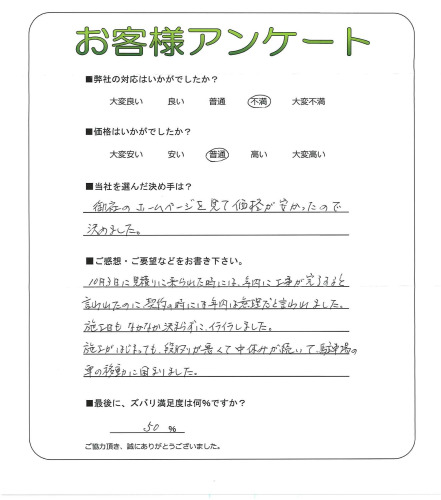 お客様アンケート
■弊社の対応はいかがでしたか？
大変良い 良い 普通 不満 大変不満
■価格はいかがでしたか？
大変安い 安い 普通 高い 大変高い
■当社を選んだ決め手は？
御社のホームページを見て価格が安かったので
決めました。
■ご感想・ご要望などをお書き下さい。
10月3日に見積りに来られた時には、年内に工事が完了すると
言われたのに契約の時には年内は無理だと言われました。
施工日もなかなか決まらずに、イライラしました。
施工がはじまっても、段取りが悪くて中休みが続いて駐車場の
車の移動に困りました。
■最後に、ズバリ満足度は何%ですか？
50 %
ご協力頂き、誠にありがとうございました。